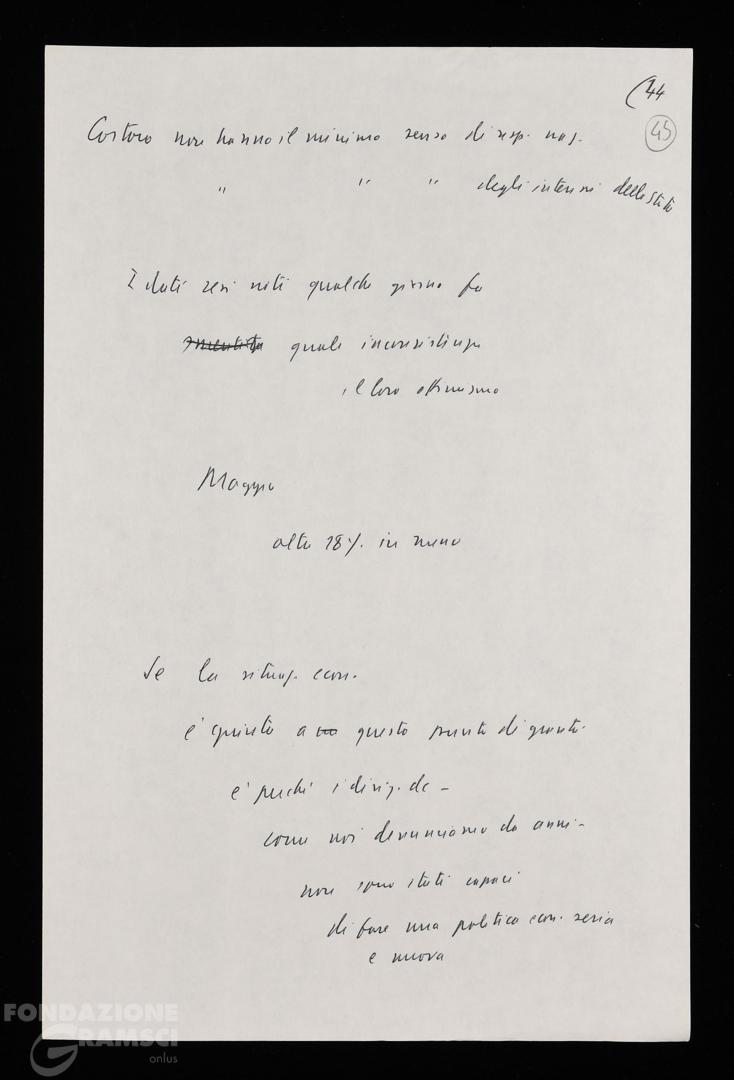 (44
45
Costoro non hanno il minimo senso di resp. naz.
" " " degli interessi dello Stato
I dati resi noti qualche giorno fa
smentita quale inconsistenza
il loro ottimismo
Maggio
altro 18% in meno
Se la situaz. econ.
è giunta a un questo punto di gravità
è perché i dirig. dc -
come noi denunciamo da anni -
non sono stati capaci
di fare una politica econ. seria
e nuova
FONDAZIONE
GRAMSCI
onlus